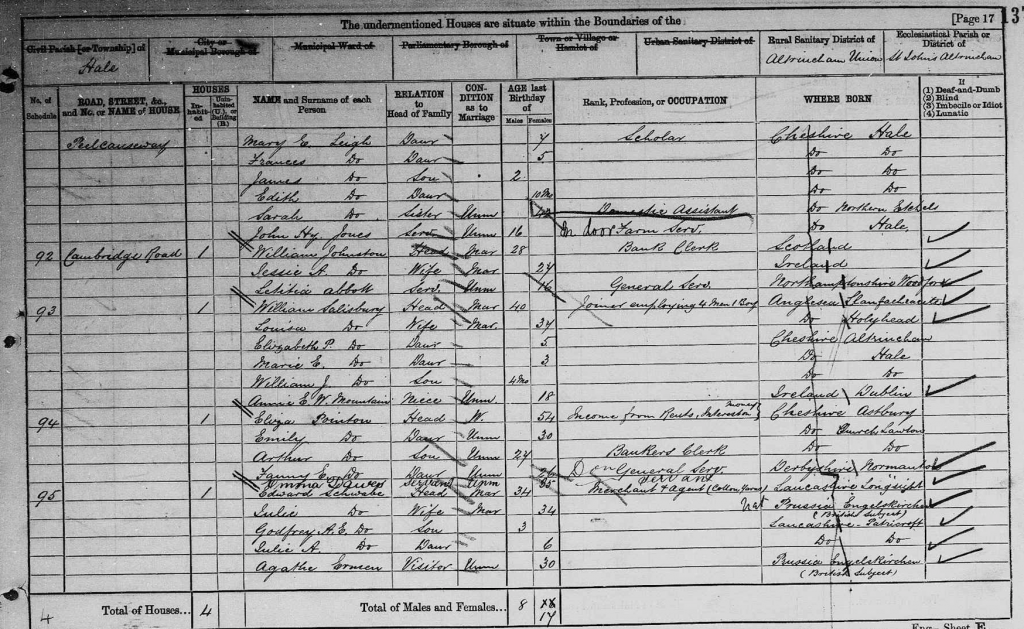 The undermentioned Houses are situate within the Boundaries of the
[Page 17
Civil Parish [or Township] of
City or Municipal Borough of
Municipal Ward of
Parliamentary Borough of
Town or Village or Hamlet of
Urban Sanitary District of
Rural Sanitary District of
Ecclesiastical Parish or District of
Hale Altrincham Union St Johns Altrincham
No. of Schedule
ROAD, STREET, &c., and No. or NAME of HOUSE
HOUSES
Inhabited
Uninhabited (U.) Building (B.)
NAME and Surname of each Person
RELATION to Head of Family
CONDITION as to Marriage
AGE last Birthday of
Males Females
Rank, Profession, or OCCUPATION
WHERE BORN
If
(1) Deaf-and-Dumb
(2) Blind
(3) Imbecile or Idiot
(4) Lunatic
Peelcauseway Mary E. Leigh Daur 7 Scholar Cheshire Hale
Frances Do Daur 5 Do Do
James Do Son 2 Do Do
Edith Do Daur 10 Mo Do Do
Sarah Do Sister Unm Domestic Assistant Do Northern Etchels
John Hy. Jones Serv. Unm 16 In door Farm Serv. Do Hale
92 Cambridge Road 1 William Johnston Head Mar 28 Bank Clerk Scotland
Jessie A. Do Wife Mar 27 Ireland
Letitia Abbott Serv. Unm 16 General Serv. Northamptonshire Woodford
93 1 William Salisbury Head Mar 40 Joiner employing 4 Men 1 Boy Anglesea
Louisa Do Wife Mar 37 Do Holyhead
Elizabeth P. Do Daur 5 Cheshire Altrincham
Marie E. Do Daur 3 Do Hale
William J. Do Son 4 Mo Do Do
Annie E. W. Mountain Niece Unm 18 Ireland Dublin
94 1 Eliza Head W. 54 Income from Rents, Interest on money Cheshire Astbury
Emily Do Daur Unm 30 Do Church Lawton
Arthur Do Son Unm 27 Bankers Clerk Do Do
Fanny E. Do Daur Unm General Serv. Derbyshire
Emma Servant Unm Servant
95 1 Edward Schwabe Head Mar 34 Merchant & Agent (Cotton Yarns) Lancashire Longsight
Julie Do Wife Mar 34 Prussia Engelskirchen
(British Subject)
Godfrey A. E. Do Son 3 Lancashire - Patricroft
Julie A. Do Daur 6 Do Do
Agathe Ermen Visitor Unm 30 Prussia Engelskirchen
(British Subject)
4 Total of Houses... 4 Total of Males and Females... 8 17
Eng.—Sheet E.